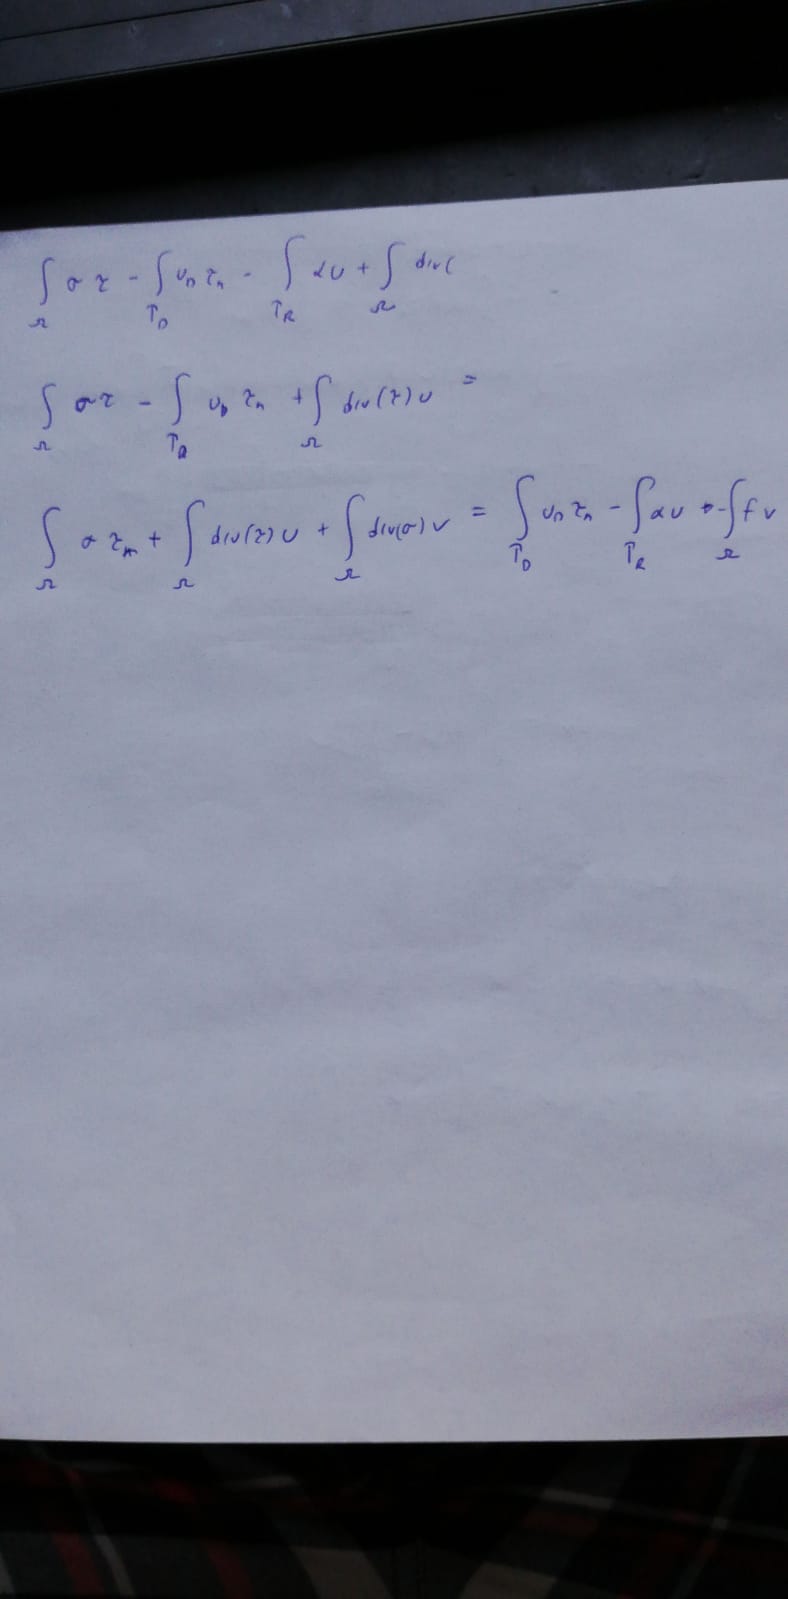 ∫_Ω σ τ - ∫_{Γ_D} u_D τ_n - ∫_{Γ_R} α u + ∫_Ω div(
∫_Ω σ τ - ∫_{Γ_D} u_D τ_n + ∫_Ω div(τ) u =
∫_Ω σ τ_m + ∫_Ω div(τ) u + ∫_Ω div(σ) v = ∫_{Γ_D} u_D τ_n - ∫_{Γ_R} α u - ∫_Ω f v